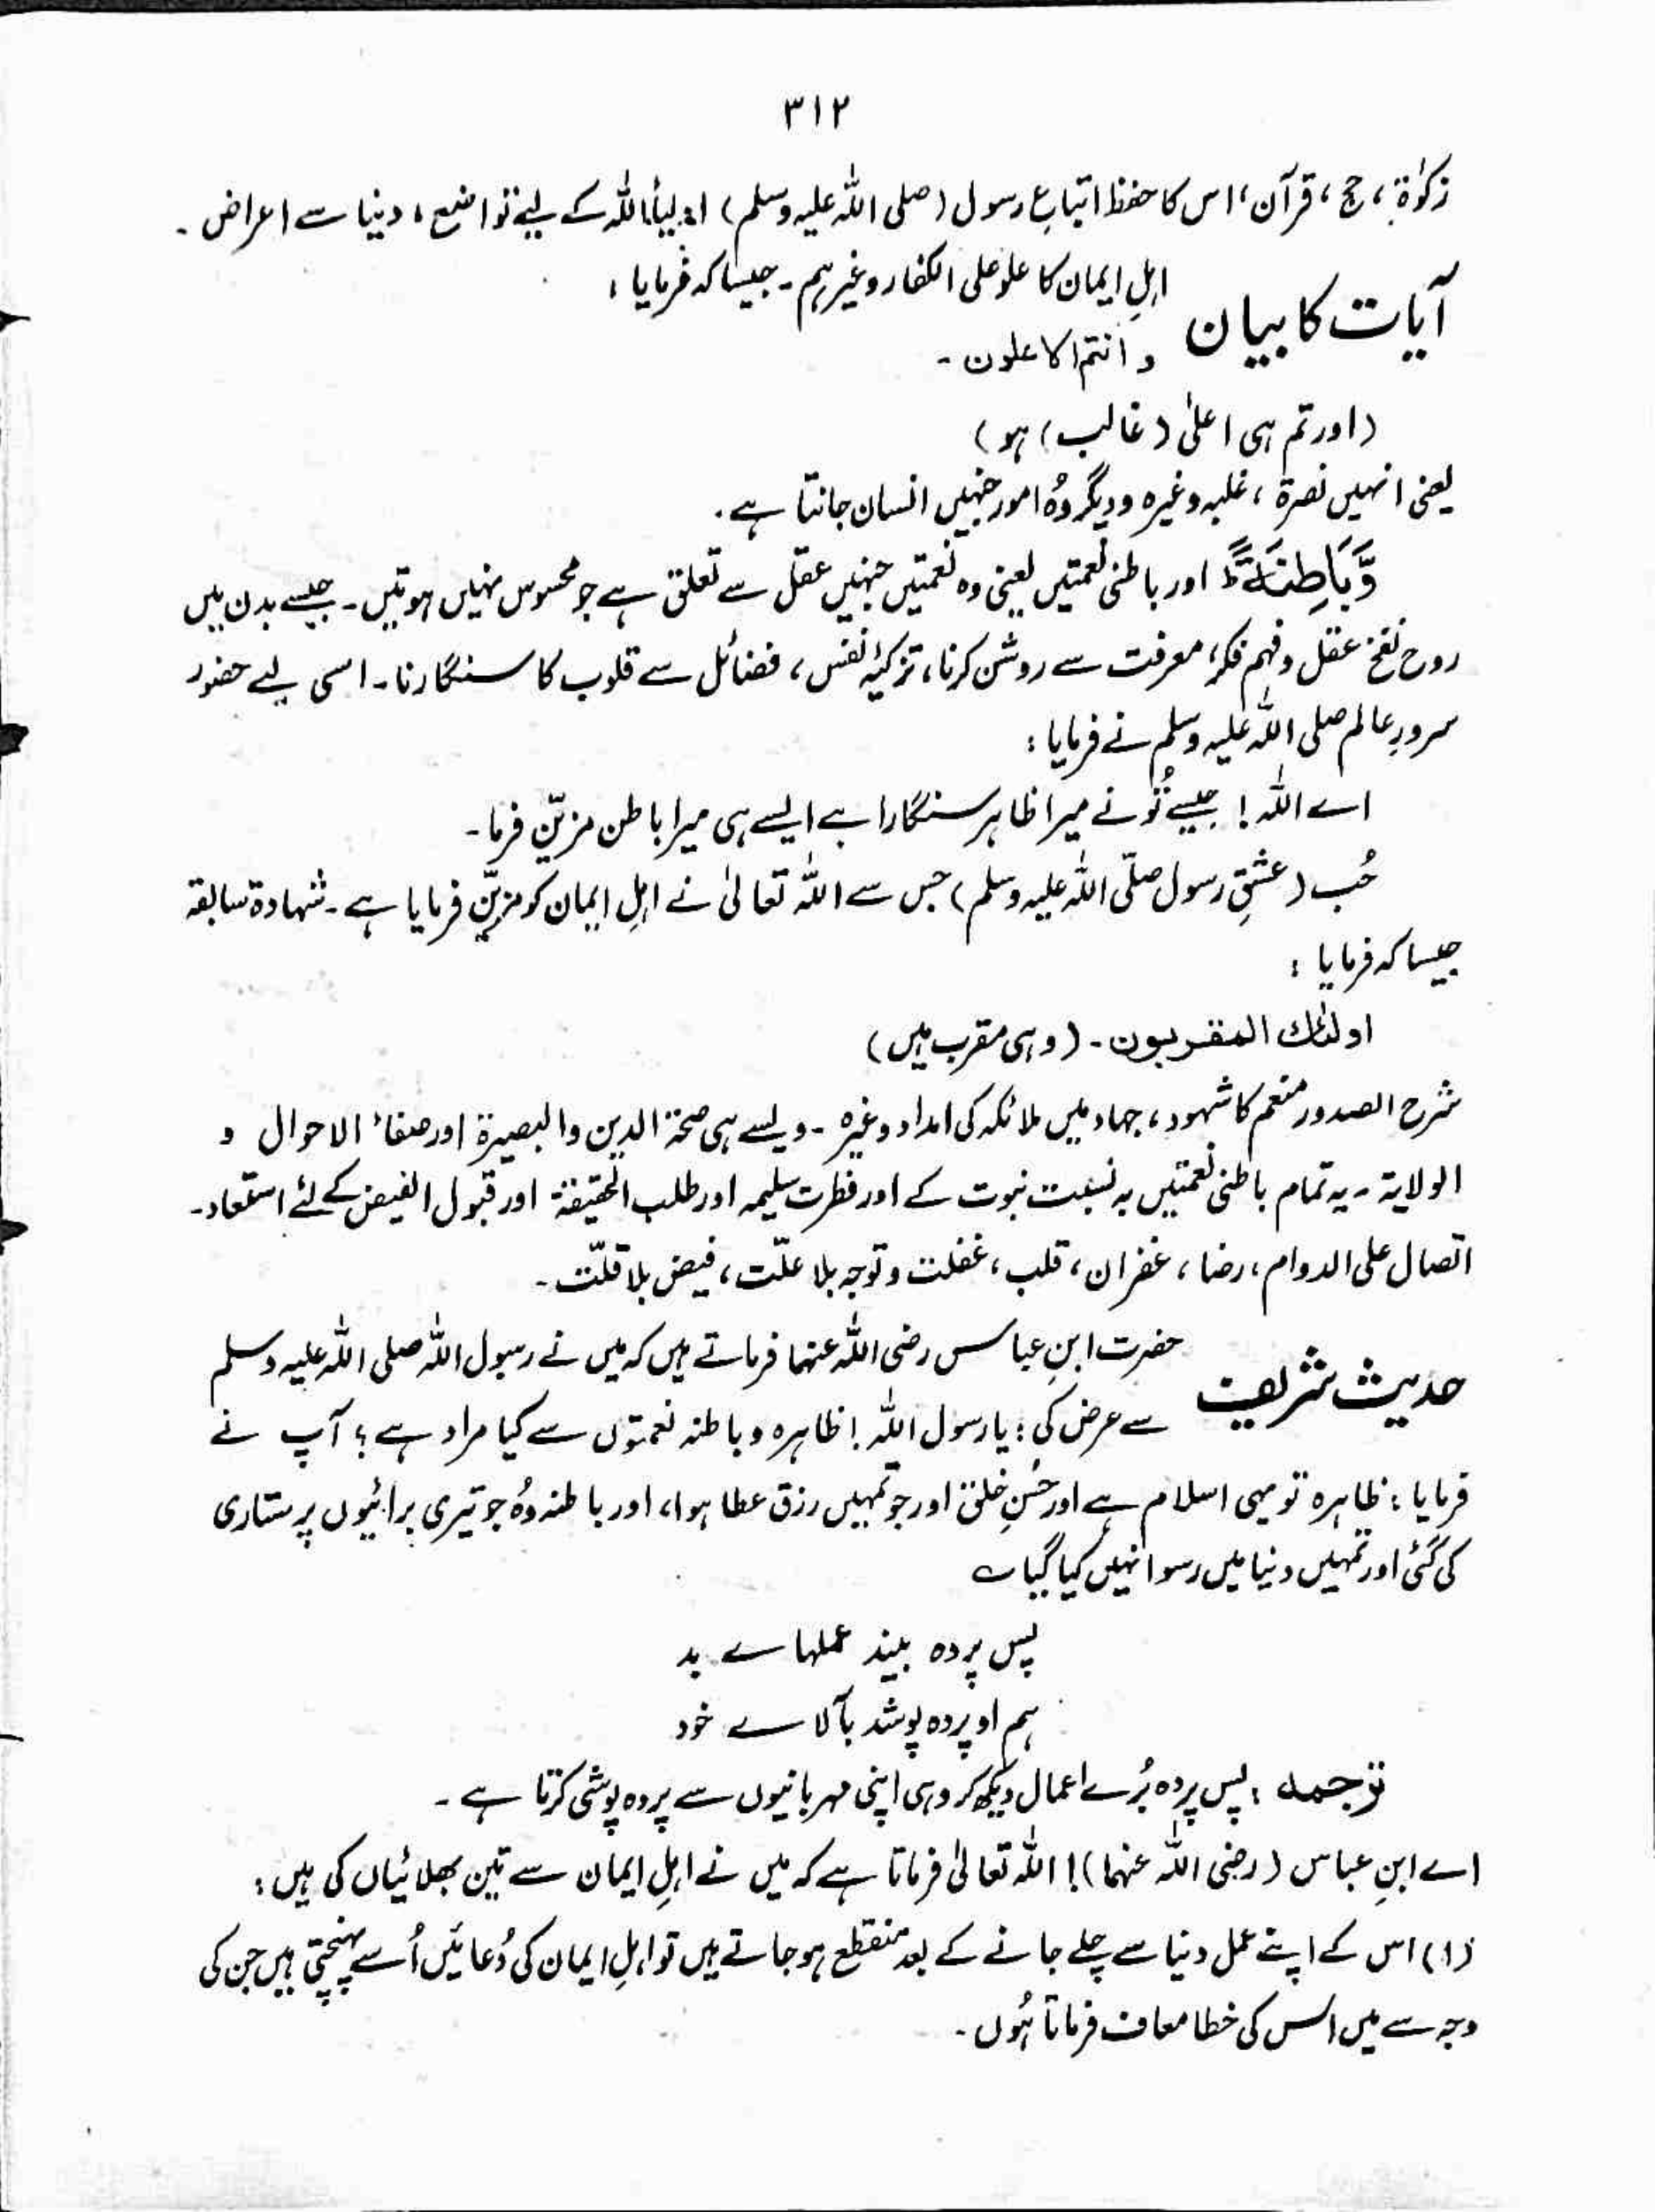 ۳۱۲
زکوٰۃ ، حج ، قرآن ، اس کا حفظ اتباعِ رسول (صلی اللہ علیہ وسلم) اولیأاللہ کے لیے تواضع ، دنیا سے اعراض ۔
آیات کا بیان
اہلِ ایمان کا علو علی الکفار وغیرہم ۔ جیسا کہ فرمایا :
و انتم الاعلون ۔
(اور تم ہی اعلیٰ (غالب) ہو)
یعنی انہیں نصرۃ ، غلبہ وغیرہ و دیگر وُہ امور جنہیں انسان جانتا ہے ۔
وَّبَاطِنَۃً ط اور باطنی نعمتیں یعنی وہ نعمتیں جنہیں عقل سے تعلق ہے جو محسوس نہیں ہوتیں ۔ جیسے بدن میں
روح نفخ عقل و فہم فکر، معرفت سے روشن کرنا ، تزکیۂ نفس ، فضائل سے قلوب کا سنگارنا ۔ اسی لیے حضور
سرورِ عالم صلی اللہ علیہ وسلم نے فرمایا :
اے اللہ ! جیسے تُو نے میرا ظاہر سنگارا ہے ایسے ہی میرا باطن مزیّن فرما ۔
حُب (عشقِ رسول صلّی اللہ علیہ وسلم) جس سے اللہ تعالیٰ نے اہلِ ایمان کو مزیّن فرمایا ہے ۔ شہادۃ سابقہ
جیسا کہ فرمایا :
اولٰئک المقربون ۔ (وہی مقرب ہیں)
شرح الصدور منعم کا شہود ، جہاد میں ملائکہ کی امداد وغیرہ ۔ ویسے ہی صحۃ الدین والبصیرۃ اور صفاء الاحوال و
الولایۃ ۔ یہ تمام باطنی نعمتیں بہ نسبت نبوت کے اور فطرت سلیمہ اور طلب الحقیقۃ اور قبول الفیض کے لئے استعداد ۔
اتصال علی الدوام ، رضا ، غفران ، قلب ، غفلت و توجہ بلا علّت ، فیض بلا قلّت ۔
حدیث شریف
حضرت ابنِ عباس رضی اللہ عنہما فرماتے ہیں کہ میں نے رسول اللہ صلی اللہ علیہ وسلم
سے عرض کی : یا رسول اللہ ! ظاہرہ و باطنہ نعمتوں سے کیا مراد ہے ؟ آپ نے
فرمایا : ظاہرہ تو یہی اسلام ہے اور حُسنِ خلق اور جو تمہیں رزق عطا ہوا ، اور باطنہ وُہ جو تیری برائیوں پر ستاری
کی گئی اور تمہیں دنیا میں رسوا نہیں کیا گیا ؎
پس پردہ بیند عملہاے بد
ہم او پردہ پوشد بآلاے خود
ترجمہ : پس پردہ بُرے اعمال دیکھ کر وہی اپنی مہربانیوں سے پردہ پوشی کرتا ہے ۔
اے ابنِ عباس (رضی اللہ عنہما) ! اللہ تعالیٰ فرماتا ہے کہ میں نے اہلِ ایمان سے تین بھلائیاں کی ہیں :
(۱) اس کے اپنے عمل دنیا سے چلے جانے کے بعد منقطع ہو جاتے ہیں تو اہلِ ایمان کی دُعائیں اُسے پہنچتی ہیں جن کی
وجہ سے میں اس کی خطا معاف فرماتا ہُوں ۔